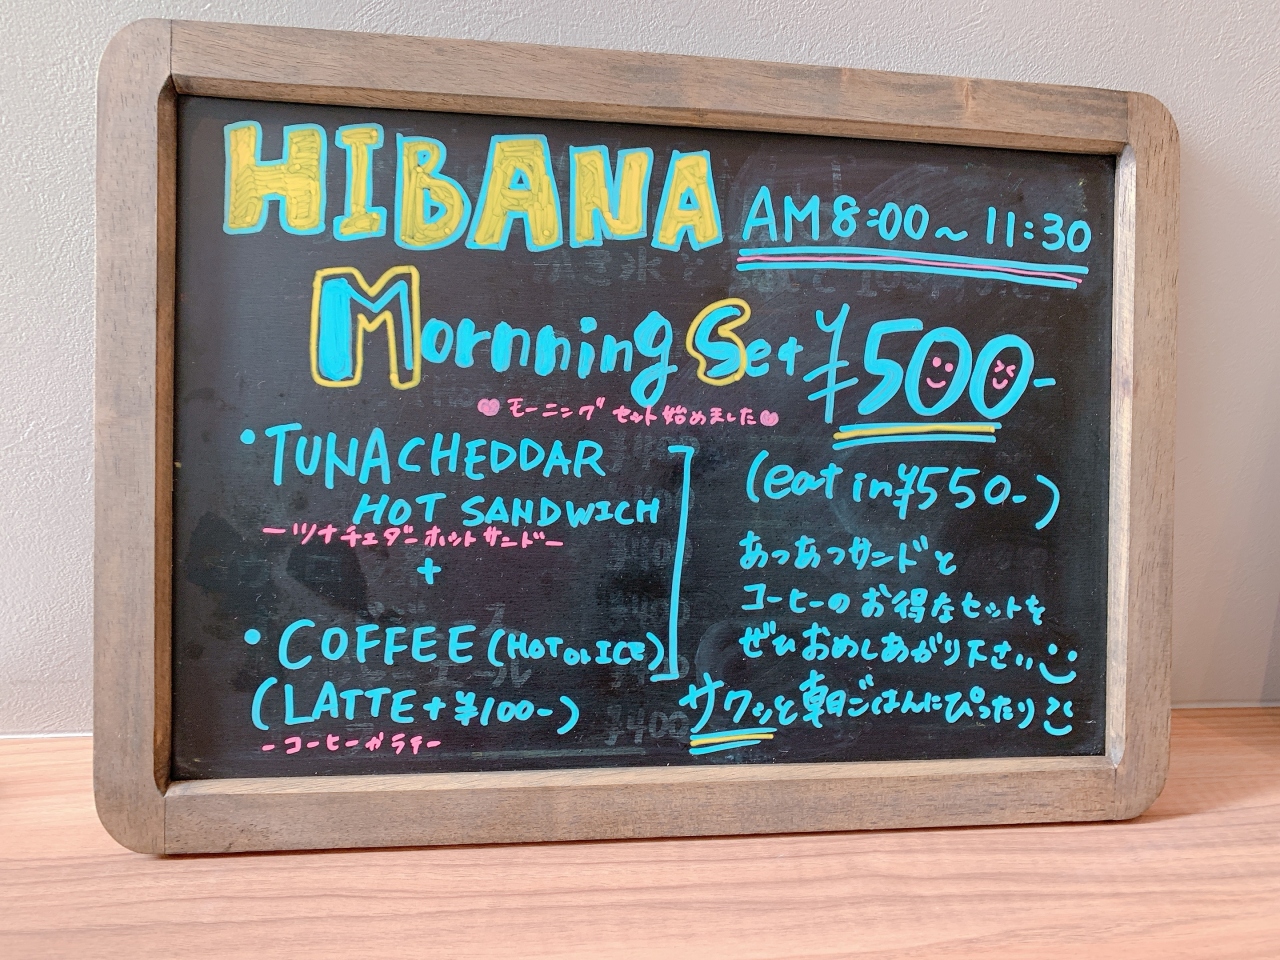 HIBANA AM 8:00～11:30
Mornning Set ¥500-
モーニングセット始めました
・TUNA CHEDDAR
HOT SANDWICH
ーツナチェダーホットサンドー
+
・COFFEE (HOT or ICE)
(LATTE + ¥100-)
-コーヒーかラテ-
(eat in ¥550-)
あつあつサンドと
コーヒーのお得なセットを
ぜひおめしあがり下さい
サクッと朝ごはんにぴったり